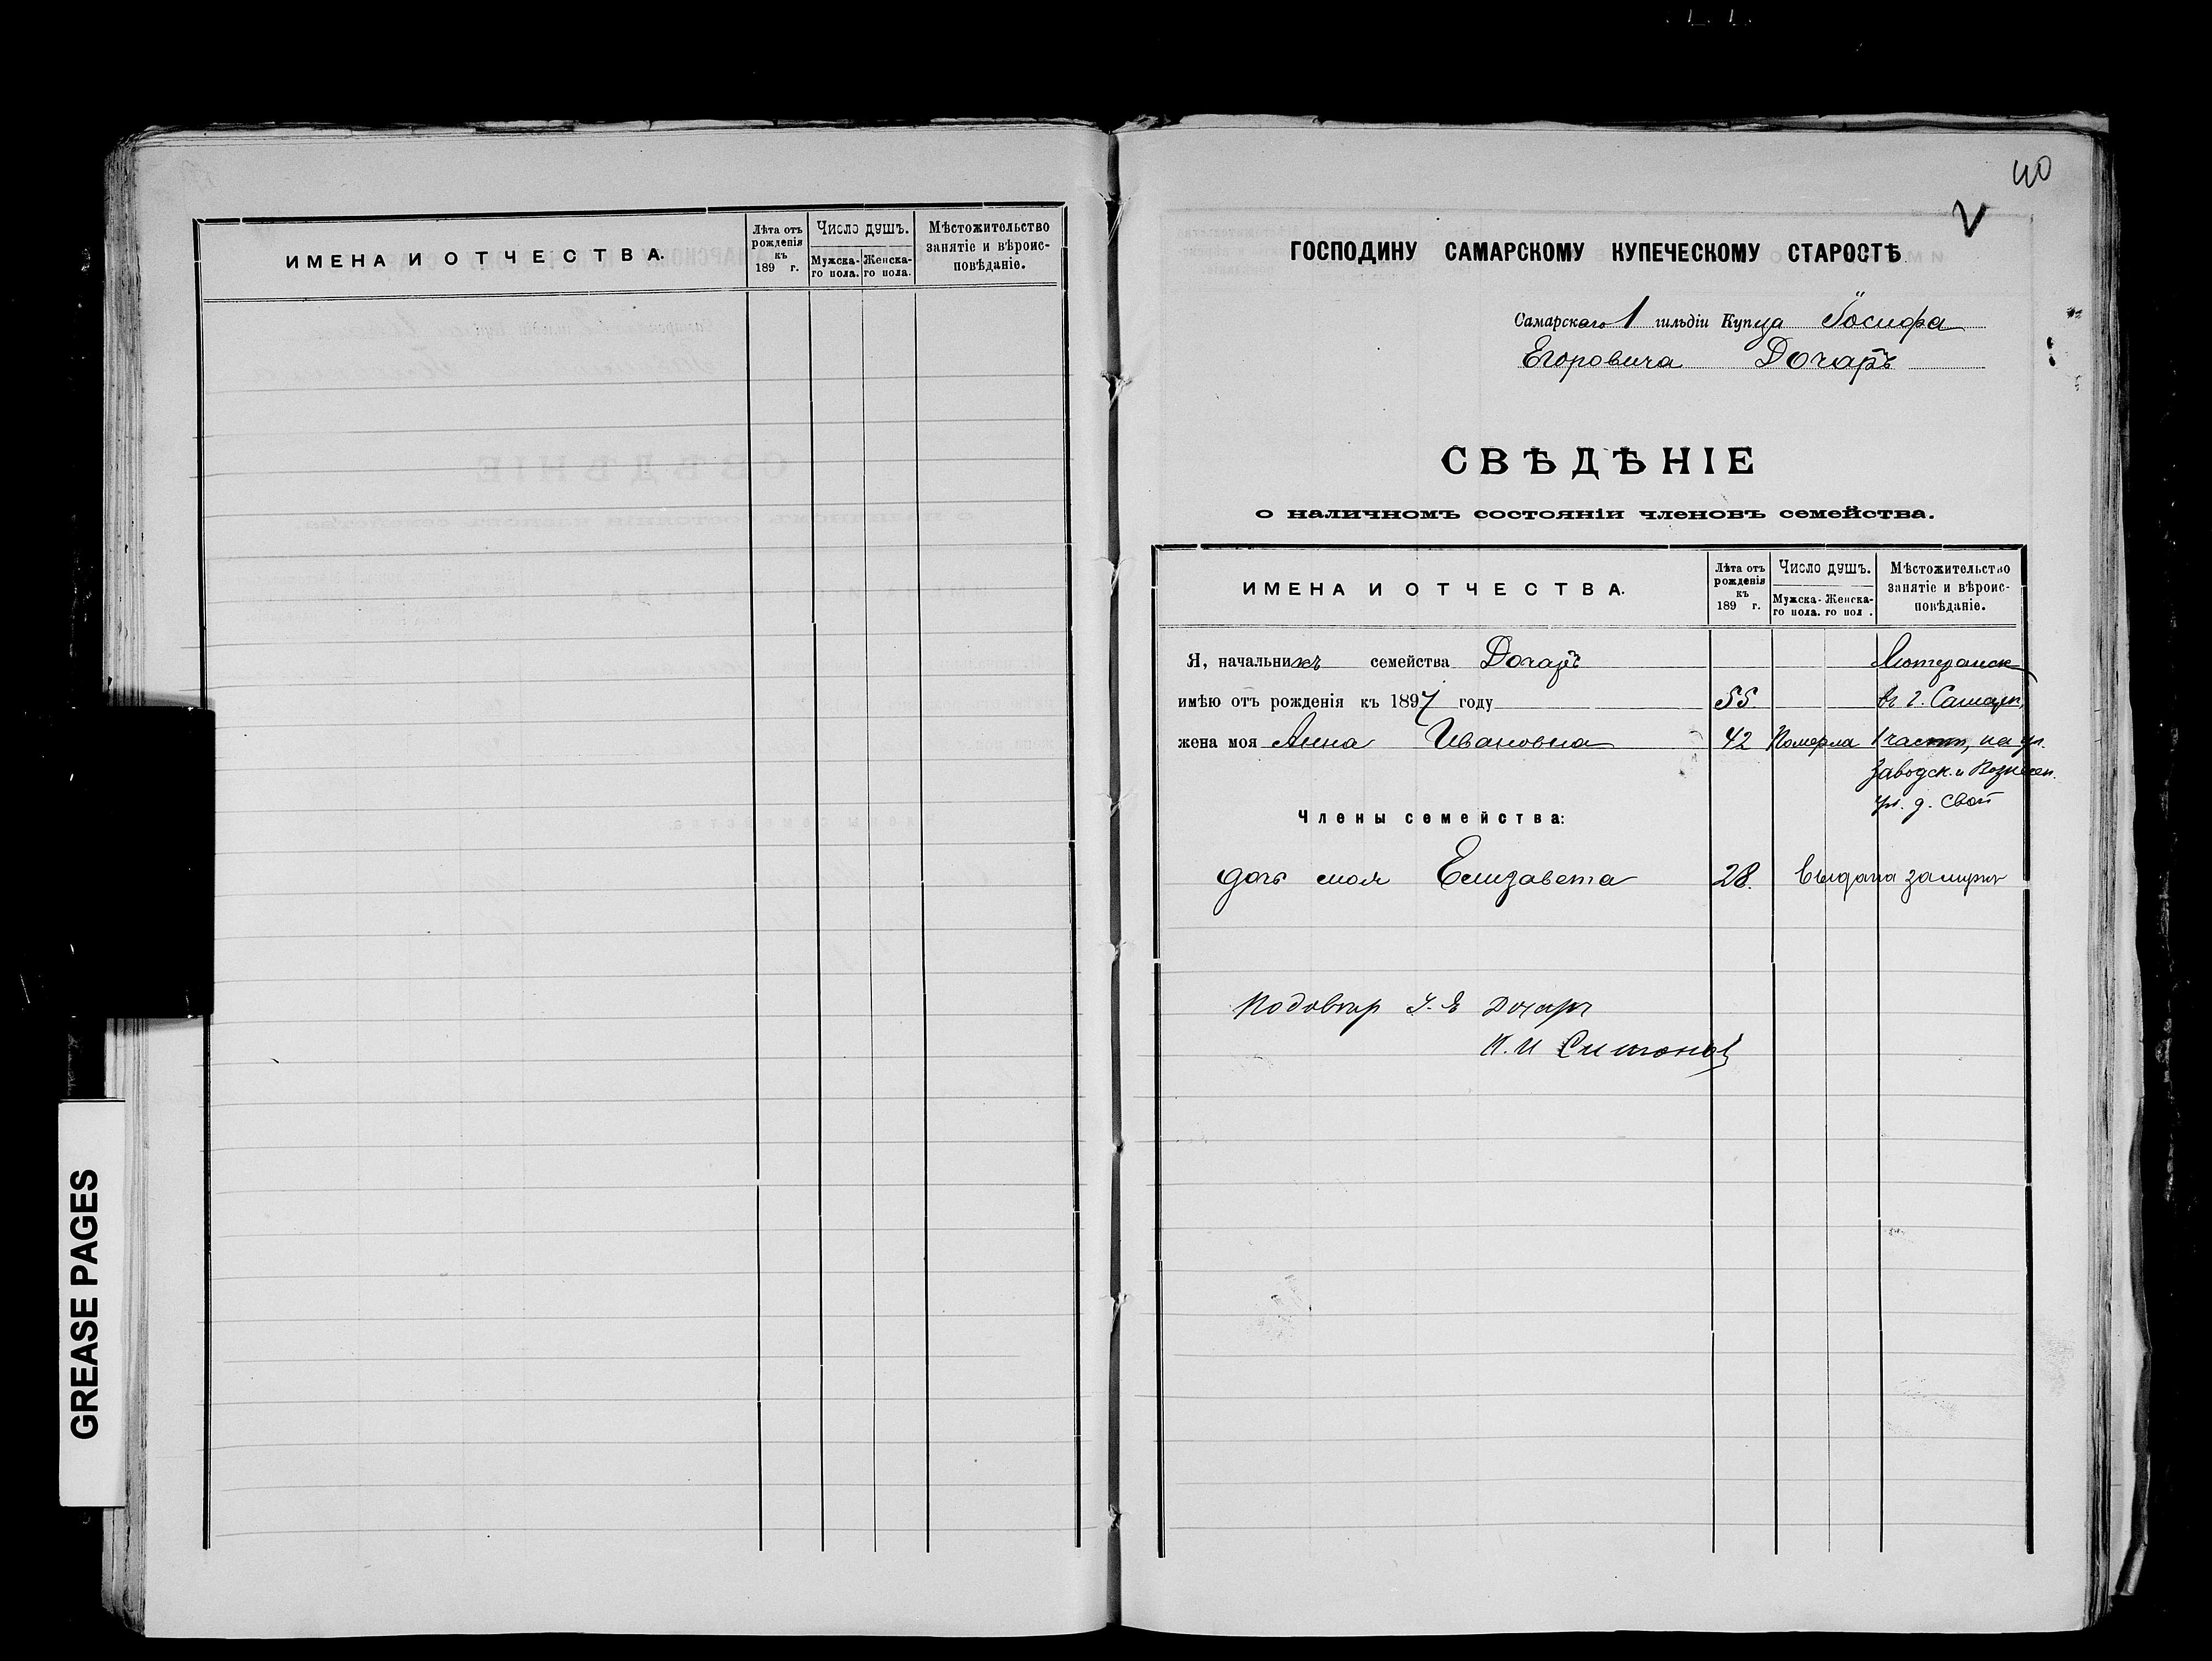 ИМЕНА И ОТЧЕСТВА.
Лѣта отъ рожденія къ 189 г.
Число душъ.
Мужска-го пола.
Женска-го пола.
Мѣстожительство занятіе и вѣроис-повѣданіе.
40
V
ГОСПОДИНУ САМАРСКОМУ КУПЕЧЕСКОМУ СТАРОСТѢ
Самарскаго 1 гильдіи Купца Іосифа
Егоровича Дочаръ
СВѢДѢНІЕ
о наличномъ состояніи членовъ семейства.
ИМЕНА И ОТЧЕСТВА.
Лѣта отъ рожденія къ 189 г.
Число душъ.
Мужска-го пола.
Женска-го пол .
Мѣстожительство занятіе и вѣроис-повѣданіе.
Я, начальникъ семейства Дочаръ Лютеранск
имѣю отъ рожденія къ 1897 году 55. въ г. Самарѣ,
жена моя Анна Ивановна 42 Померла 1 части, на уг.
Заводск. и Вознесен.
ул. д. свой
Члены семейства:
дочь моя Елизавета 28. выдана замужъ
По довѣр І. Е Дочаръ
И. И
GREASE PAGES